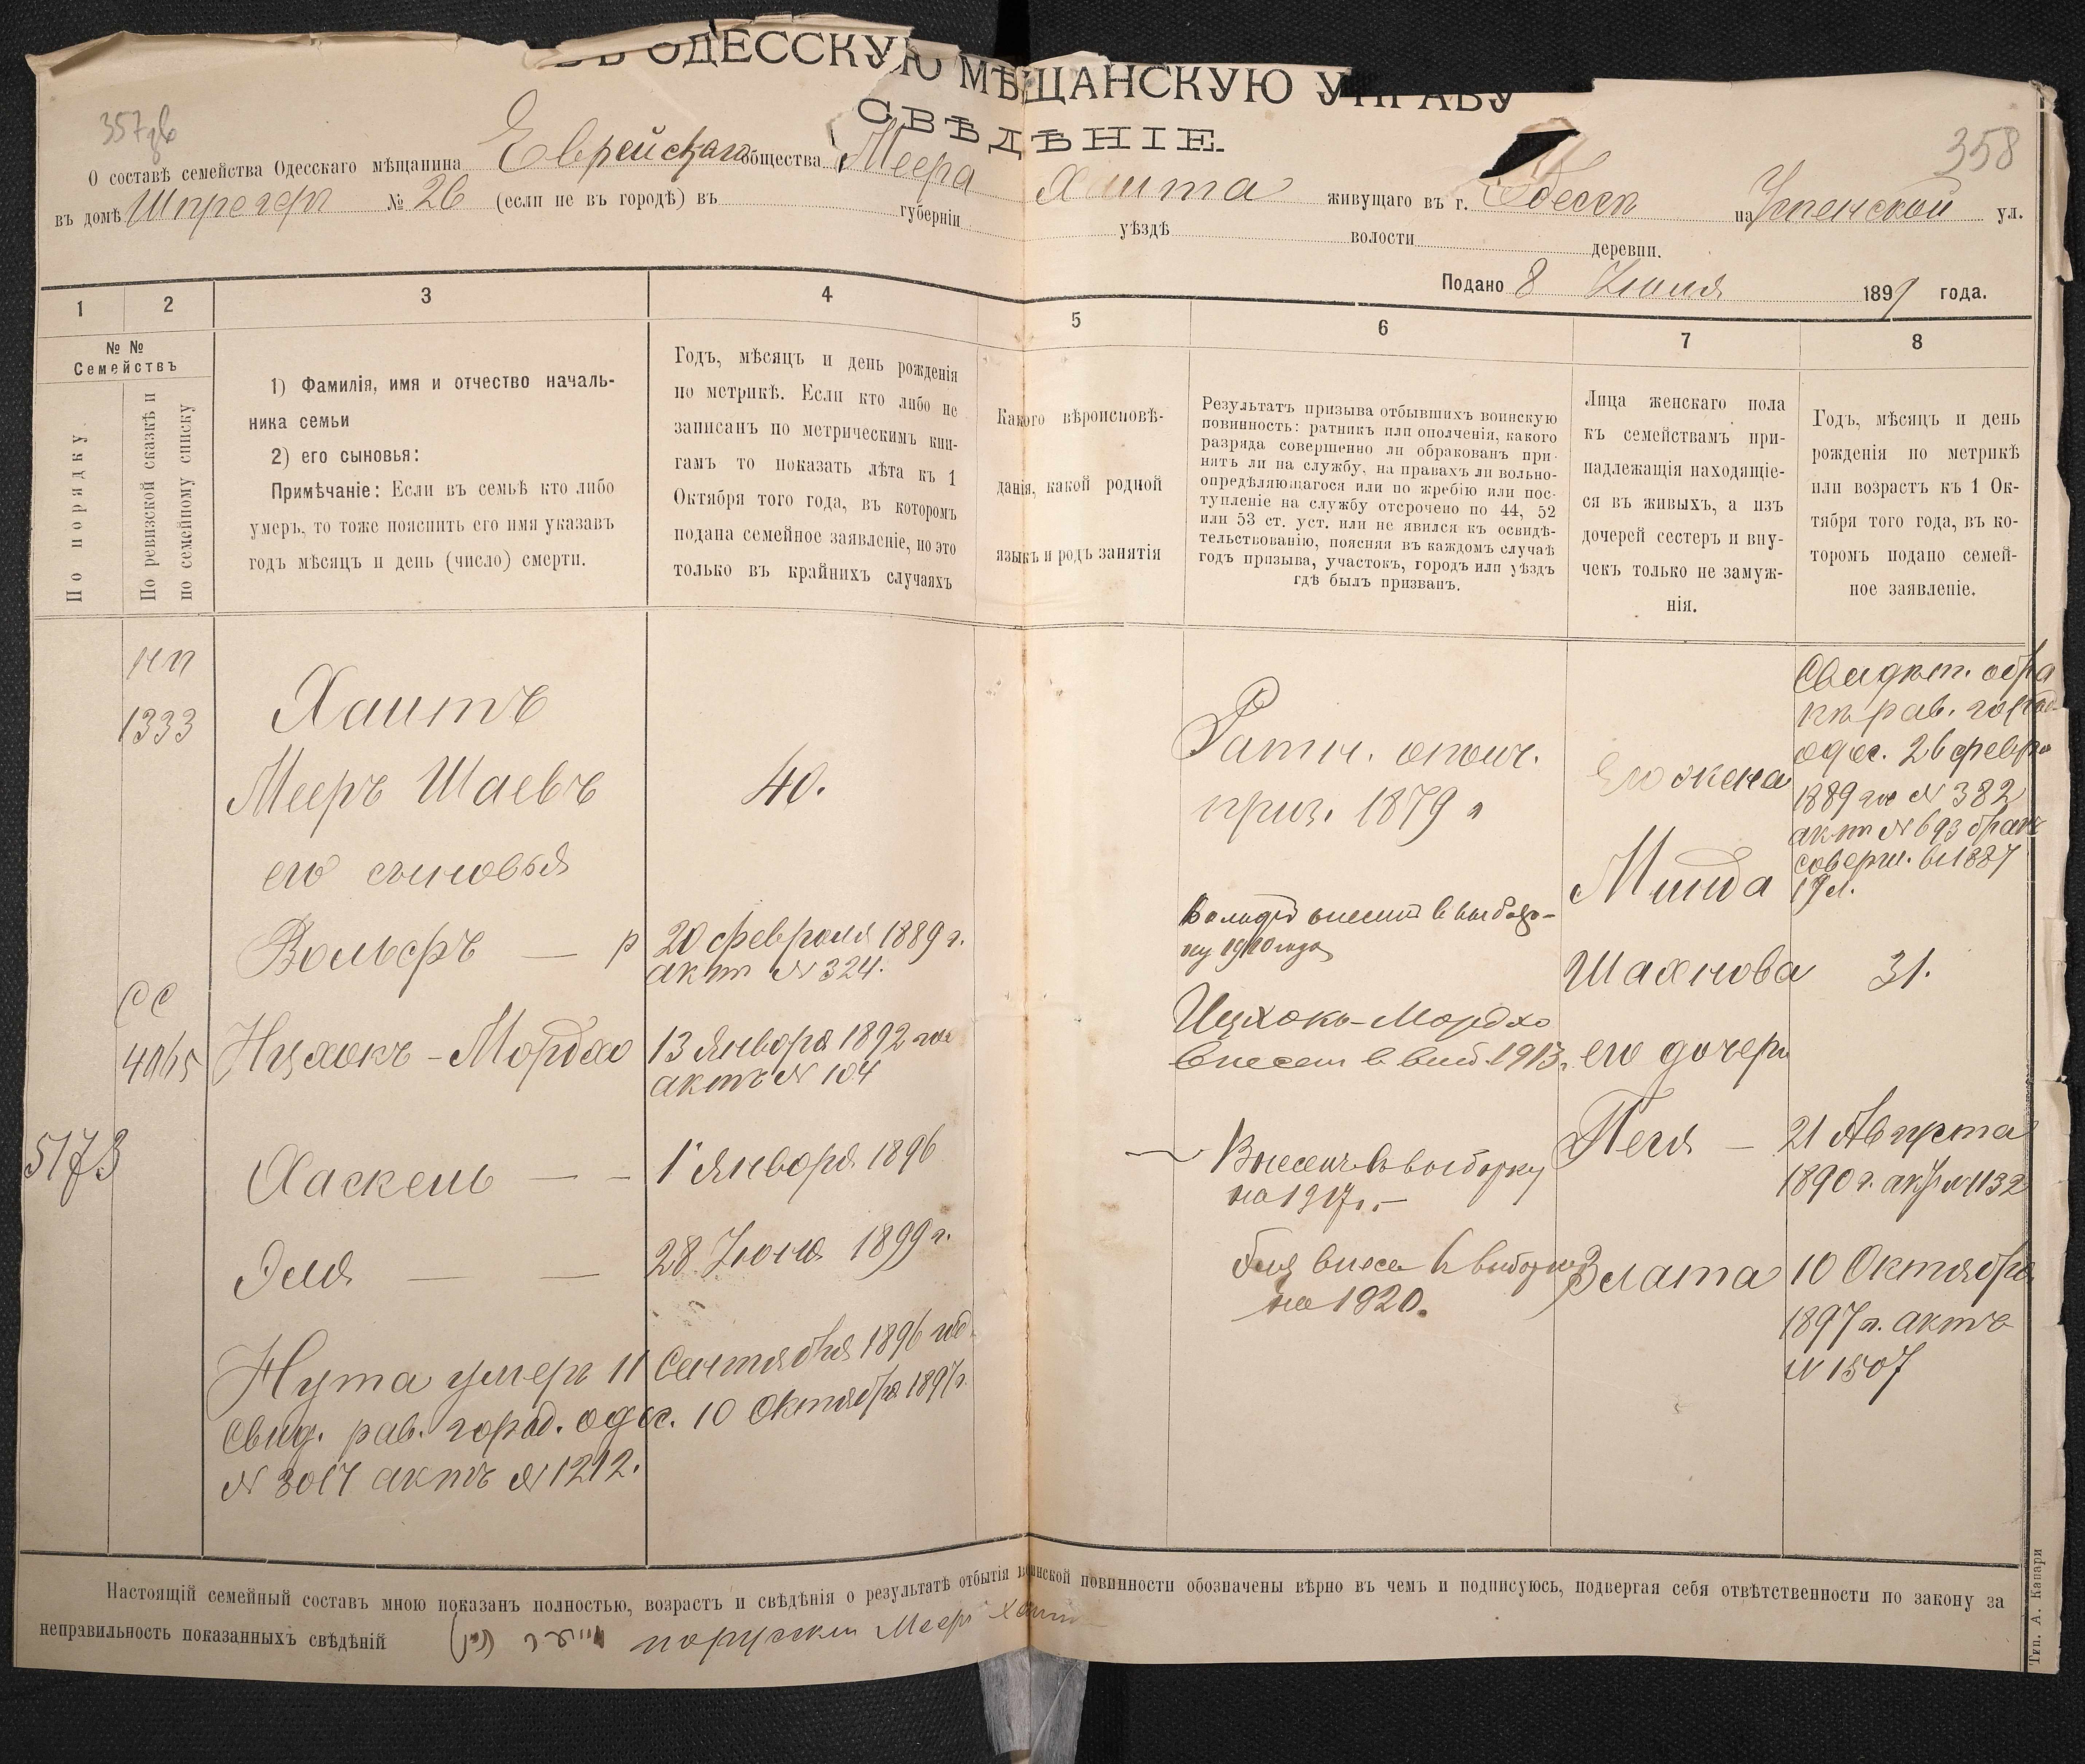 ВЪ ОДЕССКУЮ МѢЩАНСКУЮ УПРАВУ
СВѢДѢНІЕ.
358
О составѣ семейства Одесскаго мѣщанина Еврейскаго общества Меера Хаита живущаго въ г. Одессѣ на Успенской ул.
въ домѣ Шпрегеръ № 26 (если не въ городѣ) въ губерніи уѣздѣ волости деревни.
Подано 8 Іюля 1899 года.
1 2 3 4 5 6 7 8
№ № Семействъ
По порядку.
По ревизской сказкѣ и
по семейному списку
1) Фамилія, имя и отчество началь-
ника семьи
2) его сыновья:
Примѣчаніе: Если въ семьѣ кто либо
умеръ, то тоже пояснить его имя указавъ
годъ мѣсяцъ и день (число) смерти.
Годъ, мѣсяцъ и день рожденія
по метрикѣ. Если кто либо не
записанъ по метрическимъ кни-
гамъ то показать лѣта къ 1
Октября того года, въ которомъ
подана семейное заявленіе, но это
только въ крайнихъ случаяхъ
Какого вѣроисповѣ-
данія, какой родной
языкъ и родъ занятія
Результатъ призыва отбывшихъ воинскую
повинность: ратникъ или ополченія, какого
разряда совершенно ли обракованъ при-
нятъ ли на службу, на правахъ ли вольно-
опредѣляющагося или по жребію или пос-
тупленіе на службу отсрочено по 44, 52
или 53 ст. уст. или не явился къ освидѣ-
тельствованію, поясняя въ каждомъ случаѣ
годъ призыва, участокъ, городъ или уѣздъ
гдѣ былъ призванъ.
Лица женскаго пола
къ семействамъ при-
надлежащія находящіе-
ся въ живыхъ, а изъ
дочерей сестеръ и вну-
чекъ только не замуж-
нія.
Годъ, мѣсяцъ и день
рожденія по метрикѣ
или возрастъ къ 1 Ок-
тября того года, въ ко-
торомъ подано семей-
ное заявленіе.
1333
Хаитъ
Мееръ Шаевъ
его сыновья
40.
Вольфъ — р 20 февраля 1889 г.
актъ № 324.
4065
Ицхокъ-Мордхо 13 Января 1892 год
актъ № 104
5173
Хаскель — — 1 Января 1896
Эля — — 28 Іюня 1899 г.
Нута умеръ 11 Сентября 1896 год
Свид. рав. город. одес. 10 Октября 1897 г.
№ 3017 актъ № 1212.
Ратн. ополч.
приз. 1879 г
внесенъ в выборку 1910 года
Ицхокъ-Мордхо
внесен в выб. 1913 г.
Внесенъ в выборку
на 1917 г. —
Эля внесен в выборку
на 1920.
Его жена
Минда
Шахнова 31.
его дочери
Песя — 21 Августа
1890 г. акт № 1132
Злата 10 Октября
1897 г. актъ
№ 1507
Свидѣт. обра
рав. город
одес. 26 февра
1889 год № 382
акт № 693 бракъ
соверш. в 1887
Настоящій семейный составъ мною показанъ полностью, возрастъ и свѣдѣнія о результатѣ отбытія воинской повинности обозначены вѣрно въ чемъ и подписуюсь, подвергая себя отвѣтственности по закону за
неправильность показанныхъ свѣдѣній по русски Меер Хаит
Тип. А. Капари